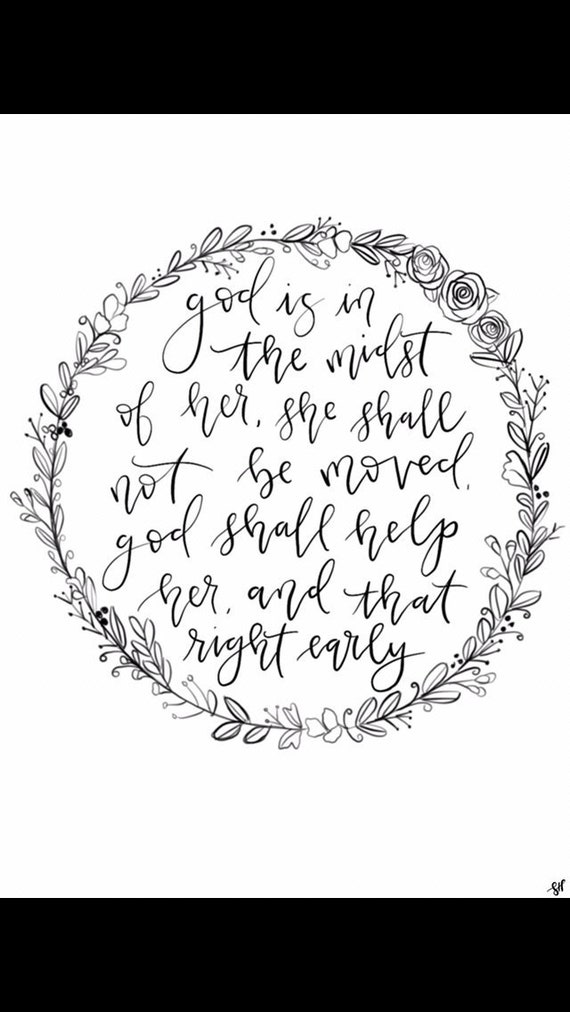 god is in
the midst
of her, she shall
not be moved,
god shall help
her, and that
right early
SH